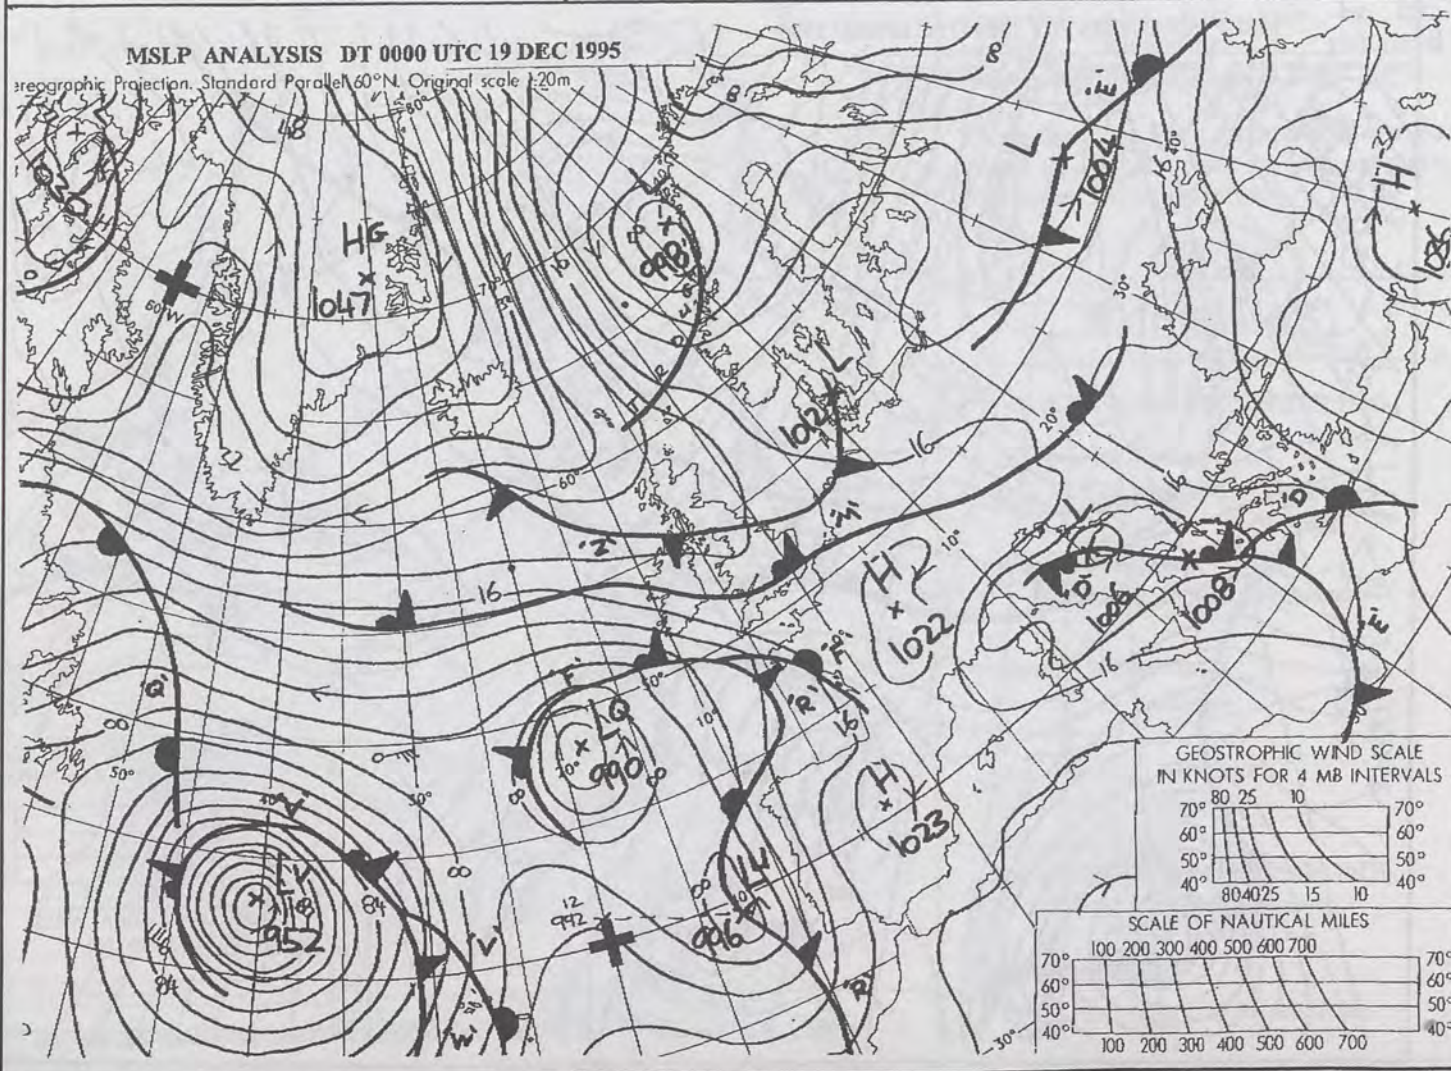 MSLP ANALYSIS DT 0000 UTC 19 DEC 1995
ereographic Projection. Standard Parallel 60°N. Original scale 1:20m
80°
48
8
8
L
1004
40°
16
H
HG
1047
60°W
70°
16
L
998
30°
L
1012
20°
16
16
60°
'Z'
'M'
10°
H
1022
L
'D'
1006
L
1008
'D'
'E'
16
16
'Q'
'F'
50°
10°
'F'
'R'
16
LQ
990
H
1023
50°
40°
30°
'V'
LV
952
84
84
12
992
L
996
'V'
'W'
'R'
30°
GEOSTROPHIC WIND SCALE
IN KNOTS FOR 4 MB INTERVALS
80 25 10
70° 70°
60° 60°
50° 50°
40° 40°
80 40 25 15 10
SCALE OF NAUTICAL MILES
100 200 300 400 500 600 700
70° 70°
60° 60°
50° 50°
40° 40°
100 200 300 400 500 600 700